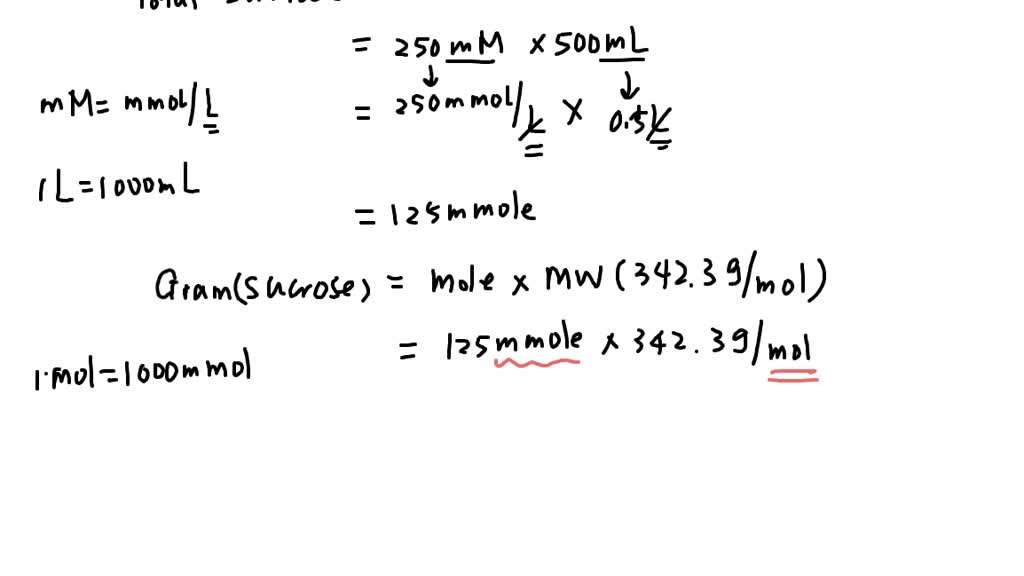 Total
= 250 mM × 500 mL
mM = mmol/L
= 250 mmol/L × 0.5 L
1L = 1000 mL
= 125 mmole
Gram(sucrose) = mole × MW (342.3 g/mol)
= 125 mmole × 342.3 g/mol
1 mol = 1000 mmol